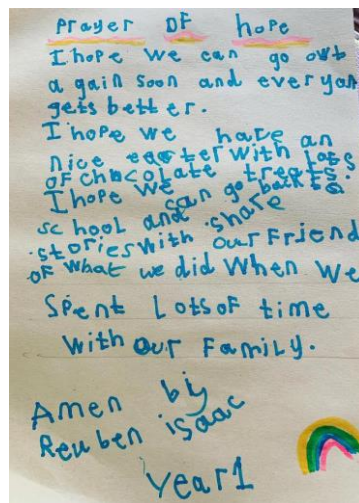 Prayer OF hope
I hope we can go owt
a gain soon and everyon
gets better.
I hope we have an
nice easter with lots
OF chocolate treats.
I hope we can go back to
school and share
stories with our Friend
OF what we did When We
Spent Lots oF time
With our Family.
Amen by
Reuben isaac
Year 1